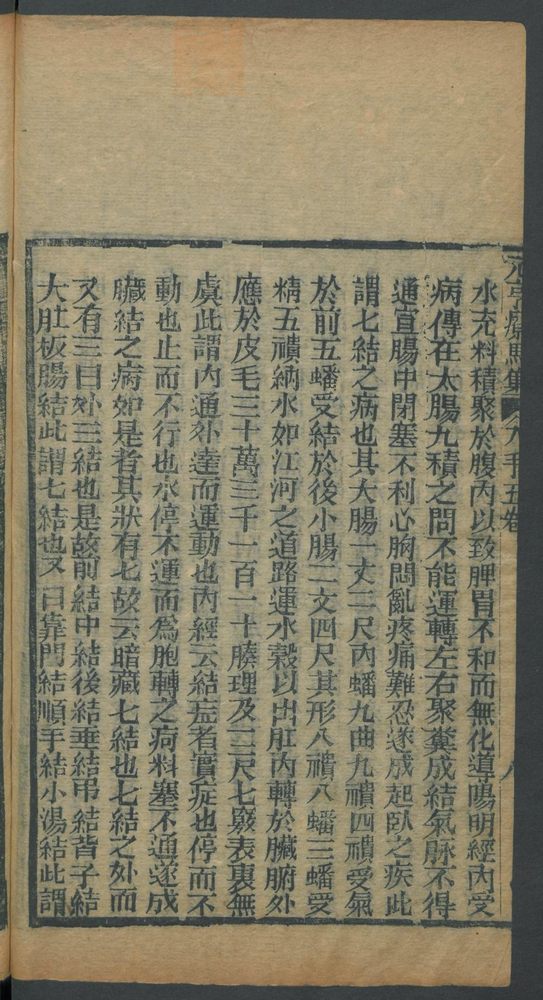 元亨療馬集 八 手五卷 八
水充料積聚於腹內以致脾胃不和而無化導陽明經內受
病傳在大腸九積之間不能運轉左右聚糞成結氣脉不得
通直腸中閉塞不利心胸悶亂疼痛難忍遂成起臥之疾此
謂七結之病也其大腸一丈二尺內蟠九曲九積四積受氣
於前五蟠受結於後小腸二丈四尺其形八積八蟠三蟠受
精五積納水如江河之道路運水穀以出肛內轉於臟腑外
應於皮毛三十萬三千一百一十腠理及三尺七竅表裏無
虞此謂內通外達而運動也內經云結症者實症也停而不
動也止而不行也水停不運而為胞轉之病料塞不通遂成
臟結之病如是者其狀有七故云暗藏七結也七結之外而
又有三曰外三結也是故前結中結後結垂結弔結背子結
大肚板腸結此謂七結也又曰靠門結順手結小湯結此謂